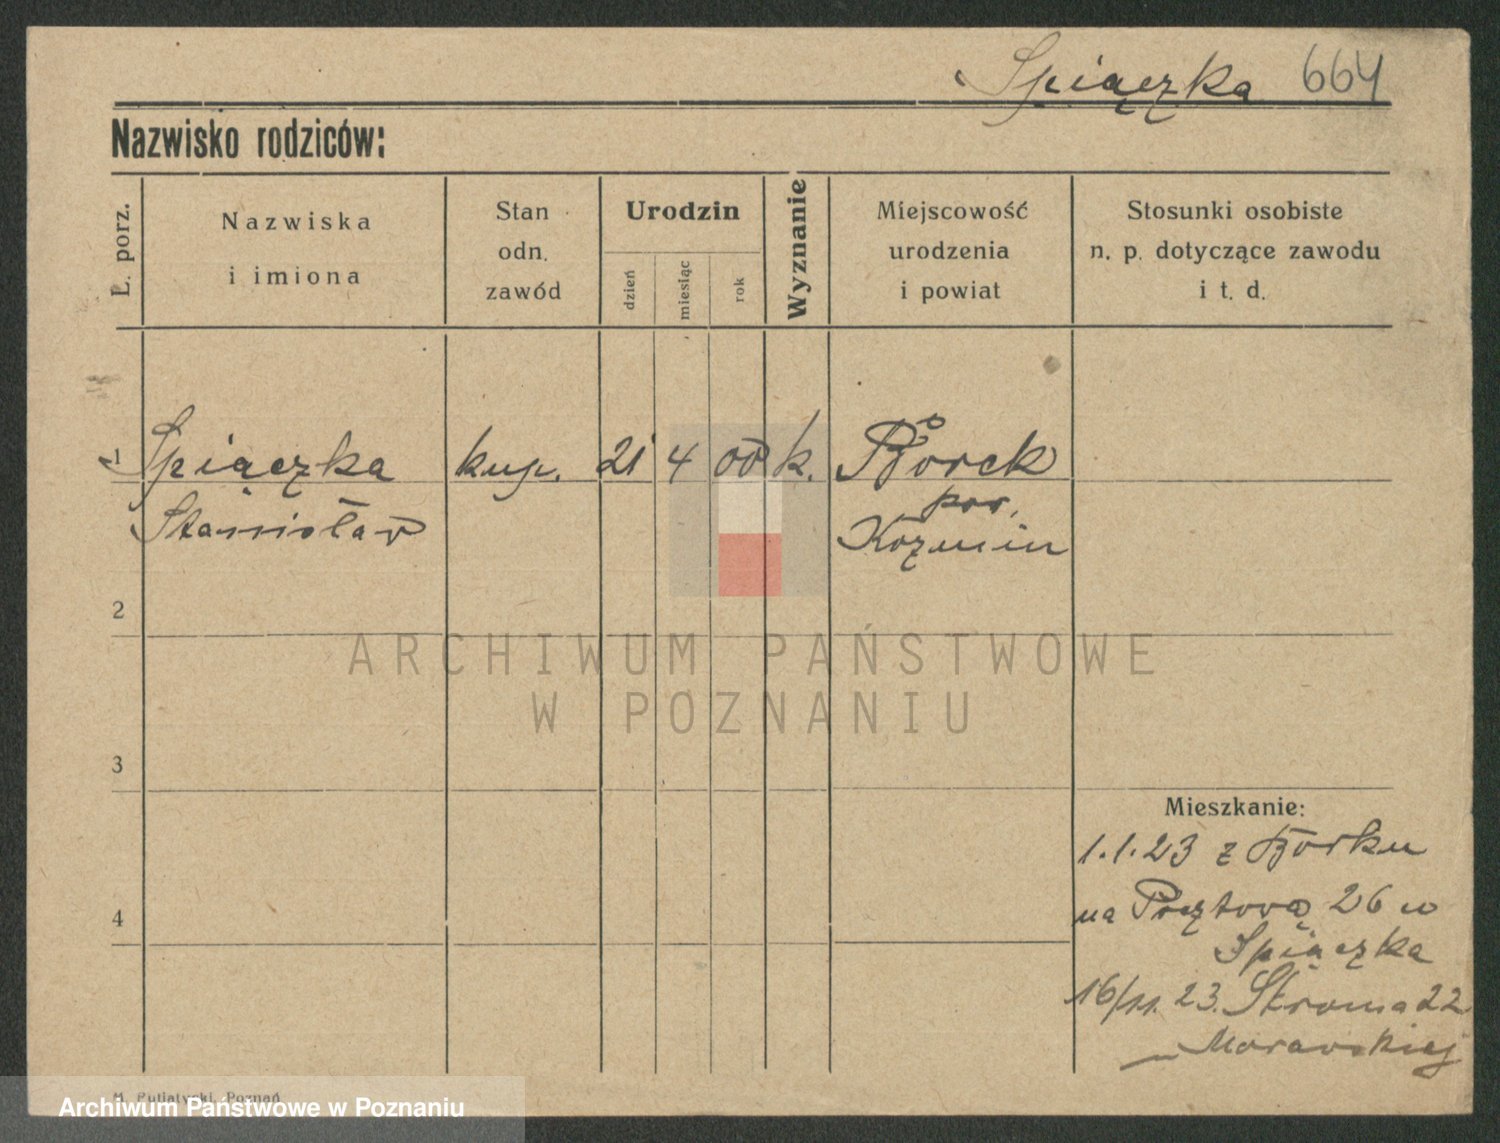 Śpiączka 664
Nazwisko rodziców:
L. porz.
Nazwiska
i imiona
Stan
odn.
zawód
Urodzin
dzień
miesiąc
rok
Wyznanie
Miejscowość
urodzenia
i powiat
Stosunki osobiste
n. p. dotyczące zawodu
i t. d.
1 Śpiączka kup. 21 4 00 k. Borek
Stanisław
pow.
Koźmin
2
3
4
ARCHIWUM PAŃSTWOWE
W POZNANIU
Mieszkanie:
1.1.23 z Borku
na Pocztową 26 u
Śpiączka
16/11.23. Stroma 22
Morawskiej
Putiatycki, Poznań
Archiwum Państwowe w Poznaniu